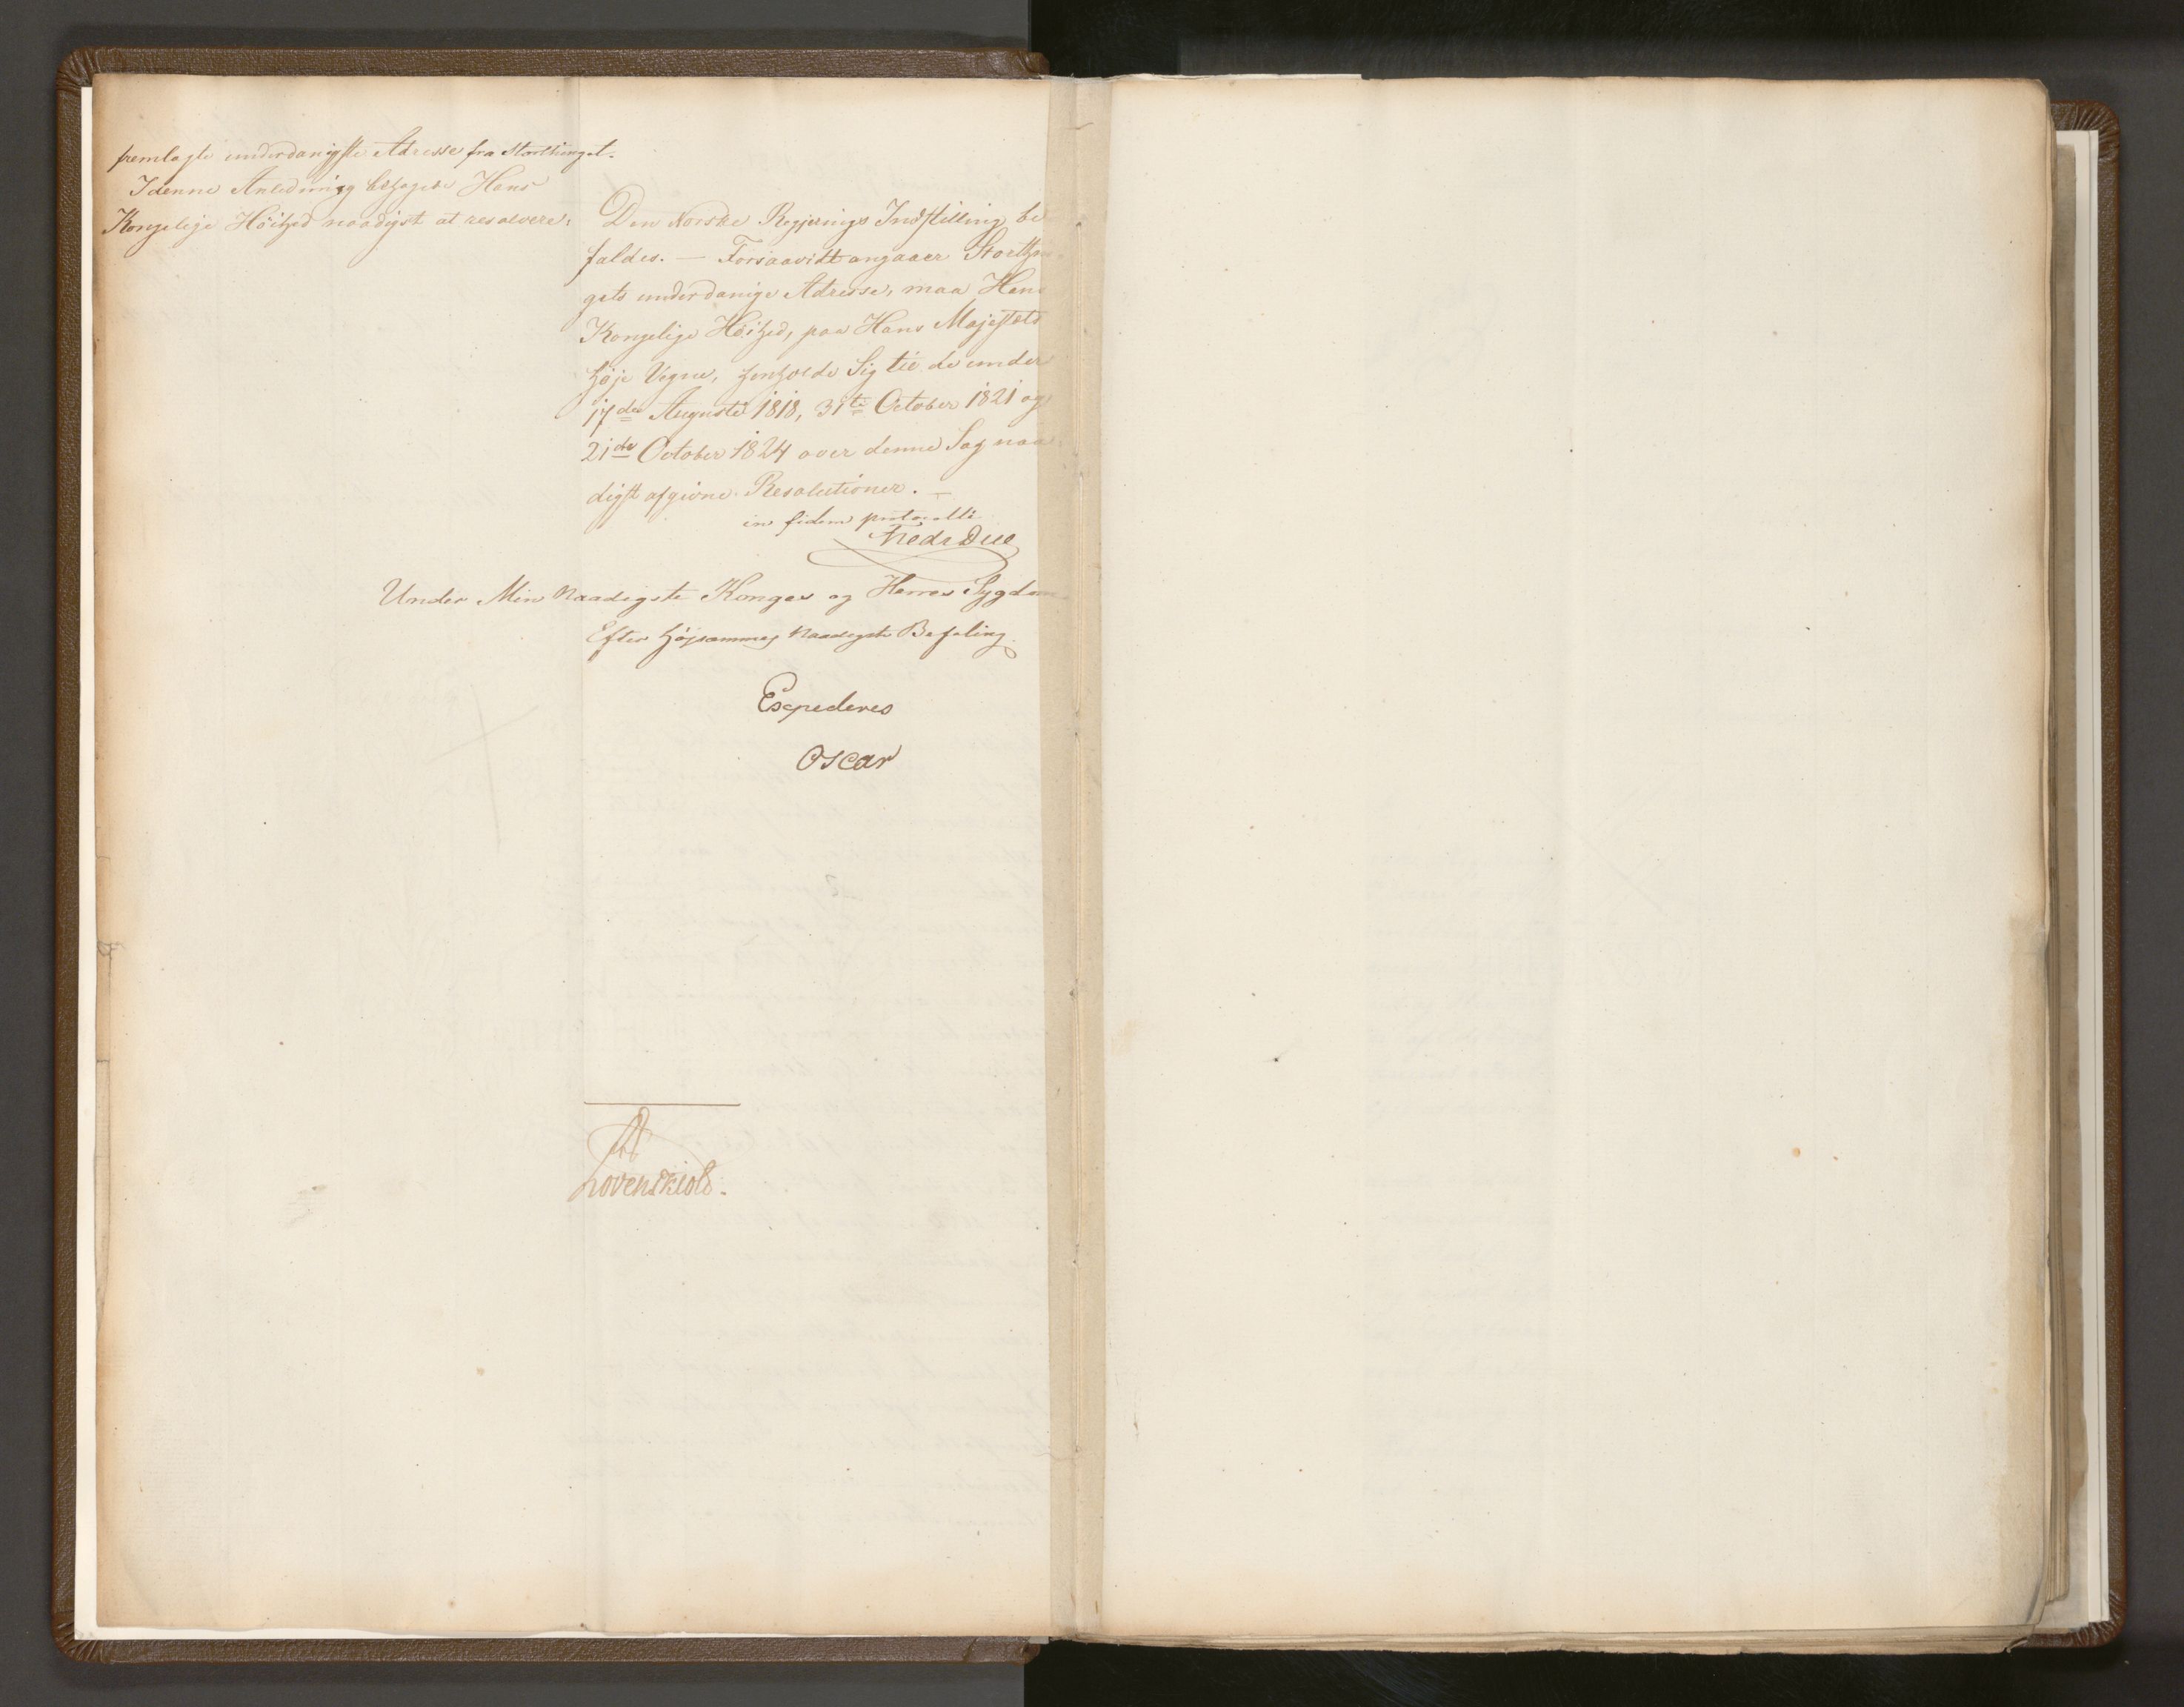 fremlagte underdanigste Adresse fra Storthinget.
I denne Anledning behagede Hans
Kongelige Höihed naadigst at resolvere:
Den Norske Regjerings Indstilling be
faldes. — Forsaavidt angaaer Storthin
gets underdanige Adresse, maa Hans
Kongelige Höihed, paa Hans Majestæts
höje Vegne, henholde Sig til de under
17de Augusti 1818, 31te October 1821 og
21de October 1824 over denne Sag naa
digst afgivne Resolutioner. —
in fidem protocolli
Fredr Due
Under Min Naadigste Konges og Herres Sygdom
Efter Höjsammes Naadigste Befaling
Expederes
Oscar
Løvenskiold.